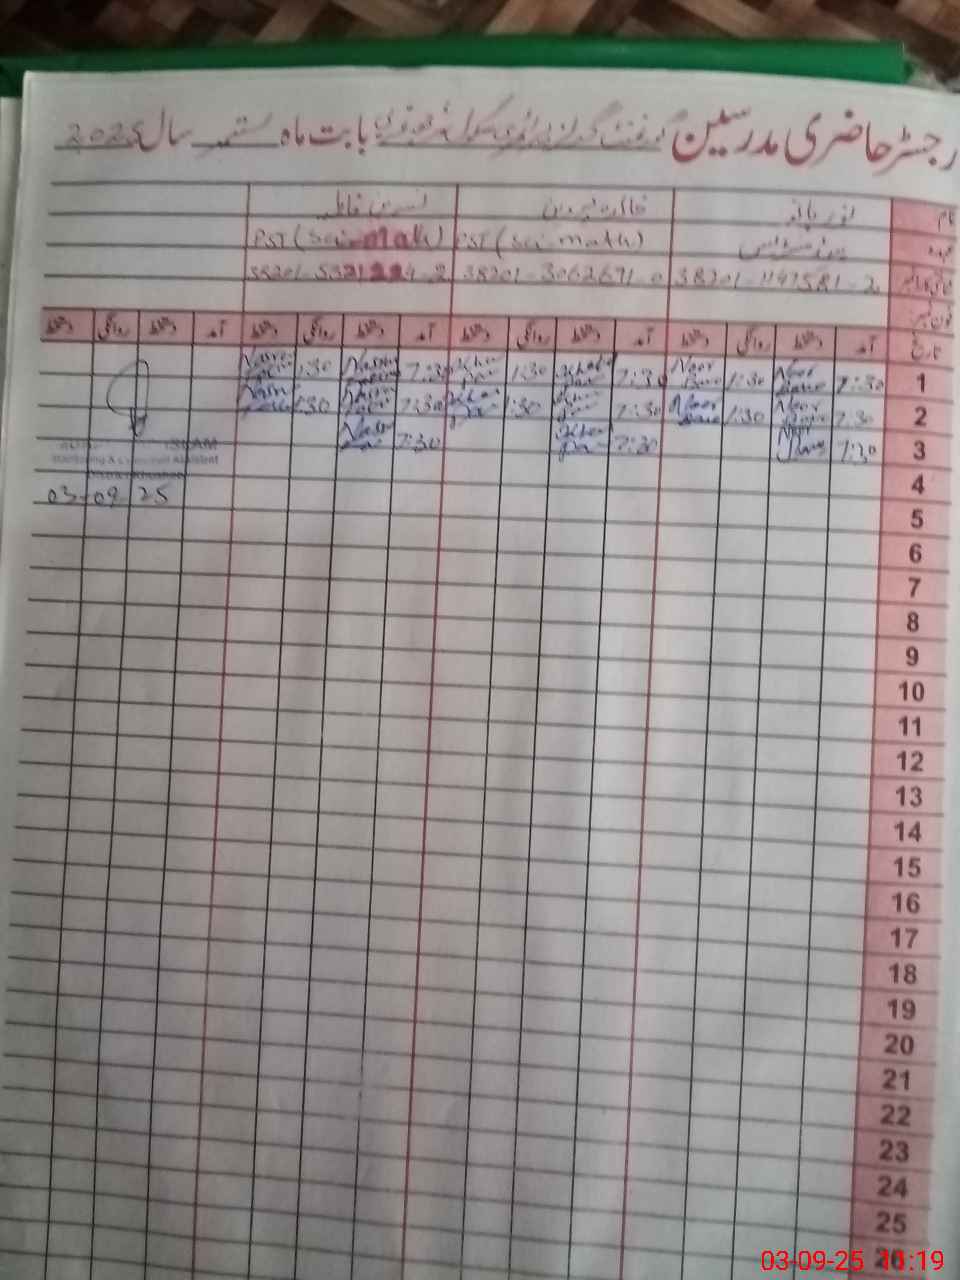 رجسٹر حاضری مدرسین گورنمنٹ گرلز پرائمری سکول بابت ماہ ستمبر سال 2025
نام نور بانو خالدہ پروین نسرین فاطمہ
عہدہ ہیڈ مسٹریس PST (Sci-math) PST (Sci-math)
شناختی کارڈ نمبر 38201-1147581-2 38201-3062671-0 38201-5321224-2
فون نمبر
تاریخ آمد دستخط روانگی دستخط آمد دستخط روانگی دستخط آمد دستخط روانگی دستخط آمد دستخط روانگی دستخط
1 7:30 Noor Bano 1:30 Noor Bano 7:30 1:30 7:30 1:30
2 7:30 Noor Bano 1:30 Noor Bano 7:30 1:30 7:30 1:30
3 7:30 Noor Bano 7:30 7:30
Monitoring & Evaluation Assistant
4
03-09-25
5
6
7
8
9
10
11
12
13
14
15
16
17
18
19
20
21
22
23
24
25
26
03-09-25 11:19